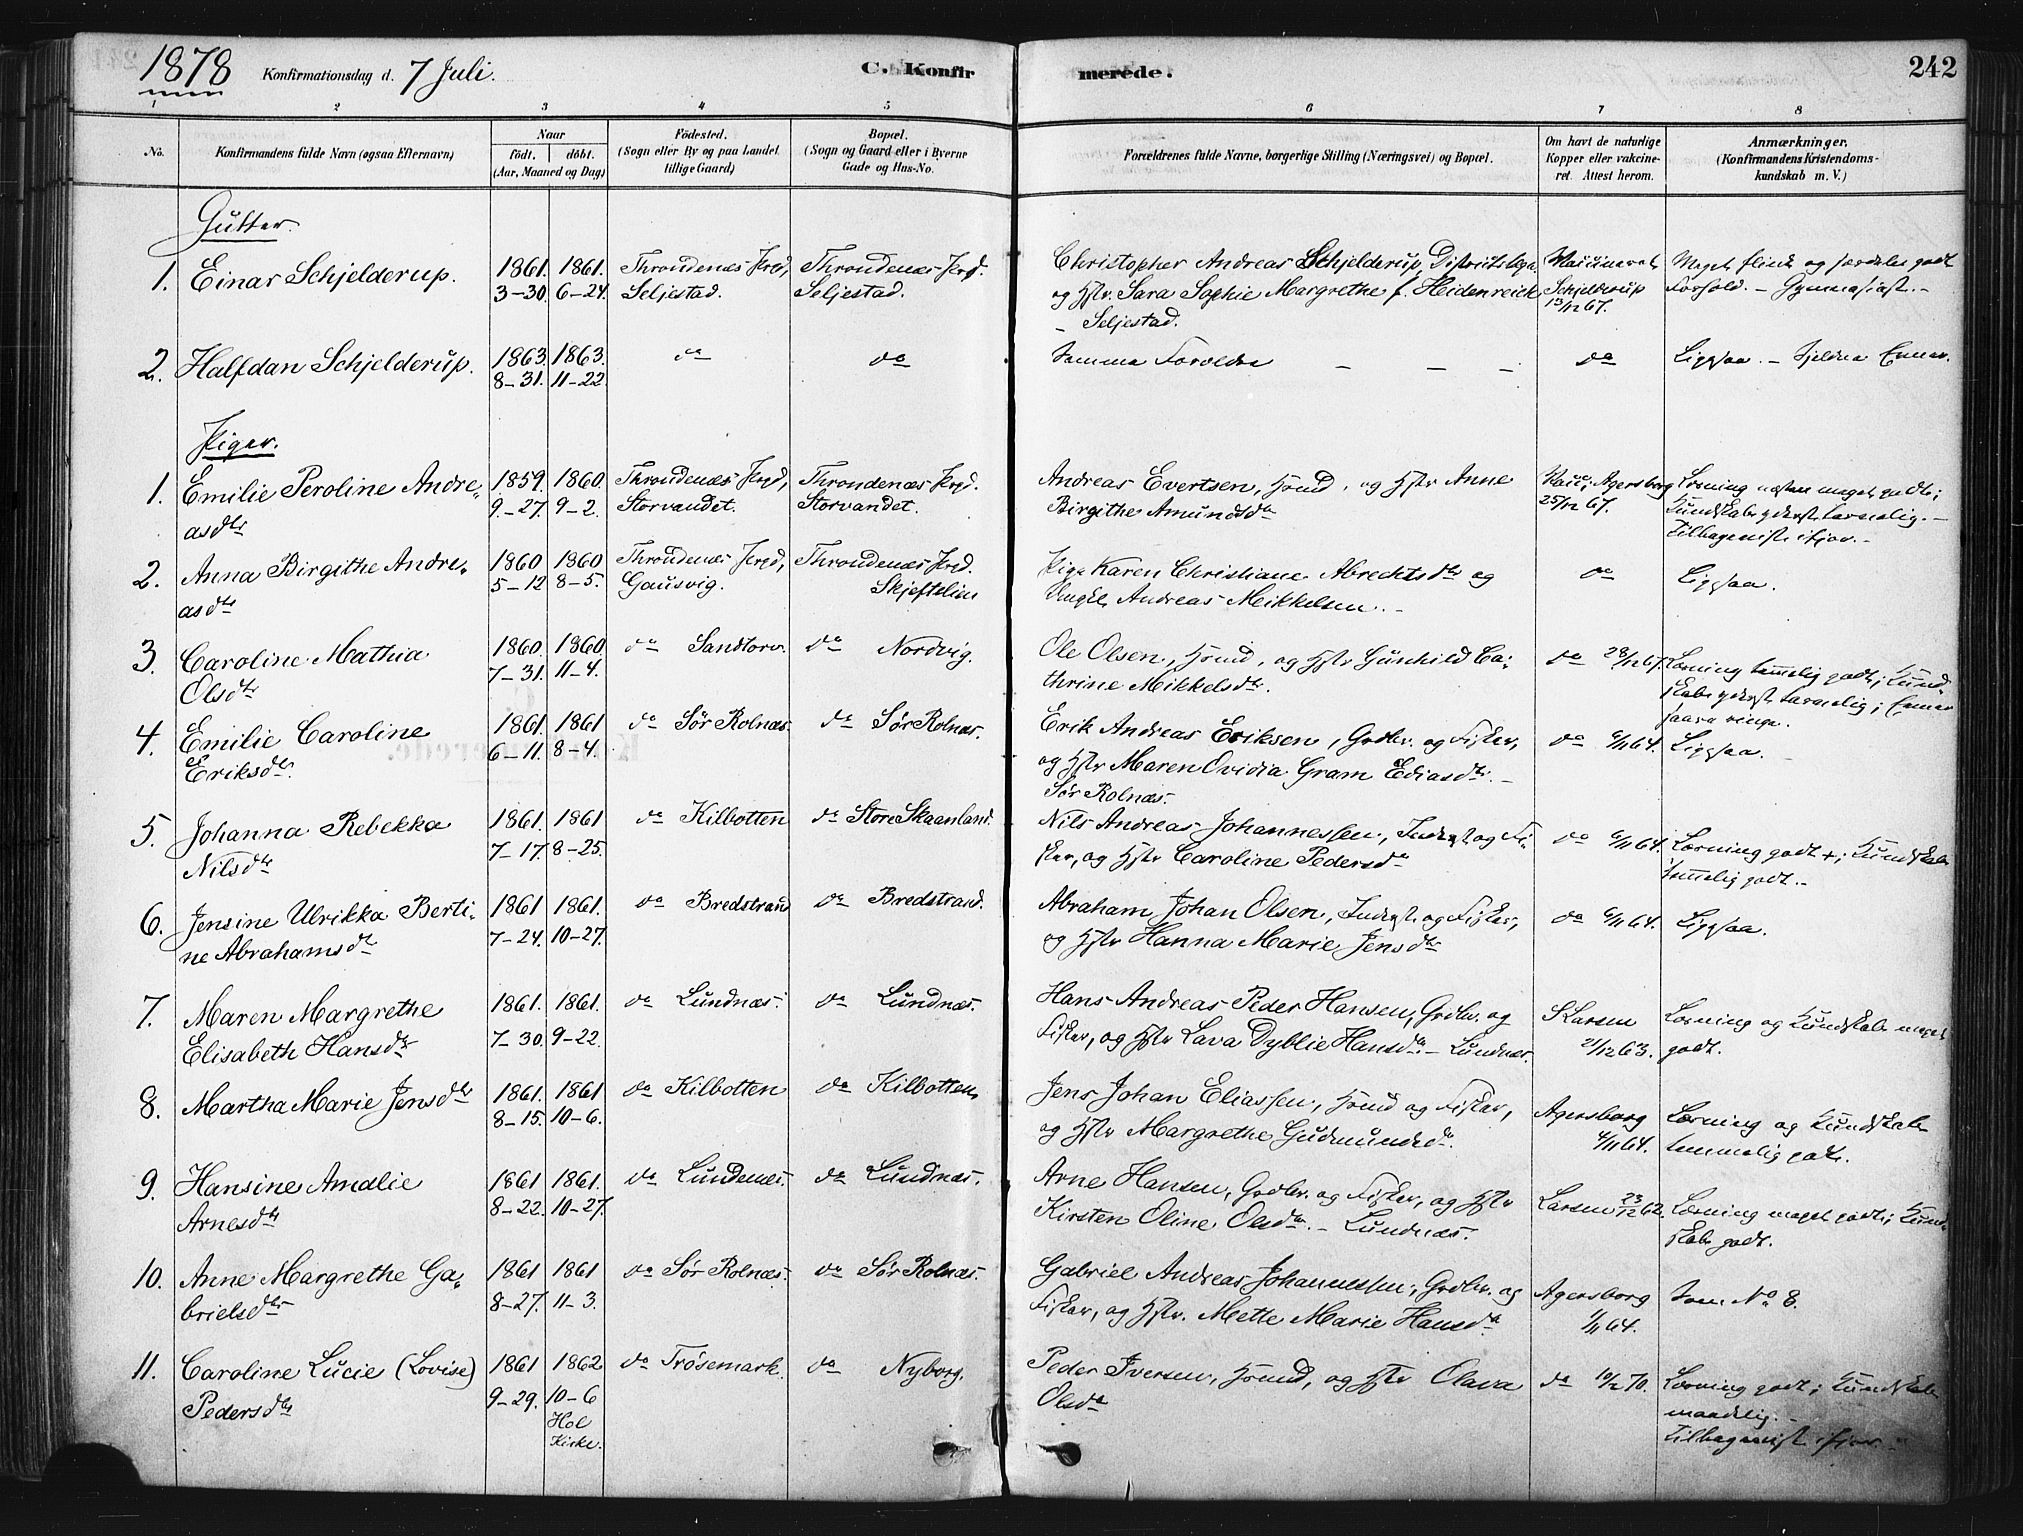 1878 Konfirmationsdag d. 7 Juli. C. Konfirmerede. 242
1 2 3 4 5 6 7 8
No. Konfirmandens fulde Navn (ogsaa Efternavn) Naar født. døbt. (Aar, Maaned og Dag) Fødested. (Sogn eller By og paa Landet tillige Gaard) Bopæl. (Sogn og Gaard eller i Byerne Gade og Hus-No. Forældrenes fulde Navne, borgerlige Stilling (Næringsvei) og Bopæl. Om havt de naturlige Kopper eller vakcineret. Attest herom. Anmærkninger, (Konfirmandens Kristendomskundskab m. V.)
Gutter.
1. Einar Schjelderup. 1861. 1861. Throndenæs Prgd, Throndenæs Prgd. Christopher Andreas Schjelderup, Distriktslæge, Vaccineret Meget flink og særdeles godt
3-30. 6-24. Seljestad. Seljestad. og Hstr. Sara Sophie Margrethe f. Heidenreich Schjelderup Forhold. - Gymnasiast. -
- Seljestad. 13/12 67.
2. Halfdan Schjelderup. 1863. 1863. do do Samme Forældre - - - do Ligesaa. - Sjeldne Evner.
8-31. 11-22.
Piger.
1. Emilie Peroline Andre- 1859. 1860. Throndenæs Prgd, Throndenæs Prgd. Andreas Evertsen, Hsmd, og Hstr Anne Vacc. Agersborg Læsning næsten meget godt;
asdtr 9-27. 9-2. Storvandet. Storvandet. Birgithe Amundsdtr 25/12 67. Kundskab yderst tarvelig. -
Tilbagevist ifjor. -
2. Anna Birgithe Andre- 1860 1860 Throndenæs Prgd, Throndenæs Prgd. Pige Karen Christiane Abrechtsdtr og do Ligesaa.
asdtr 5-12 8-5. Gausvig. Ungk. Andreas Mikkelsen. -
3. Caroline Mathia 1860. 1860 do Sandtorv. do Nordvig. Ole Olsen, Hsmd, og Hstr Gunhild Ca- do 28/12 67. Læsning temmelig godt; Kund-
Olsdtr 7-31. 11-4. thrine Mikkelsdtr. skab yderst tarvelig; Evner
saare ringe.
4. Emilie Caroline 1861. 1861 do Sør Rolnæs. do Sør Rolnæs. Erik Andreas Eriksen, Grdbr. og Fisker, do 6/11 64. Ligesaa.
Eriksdtr. 6-11. 8-4. og Hstr Maren Ovidia Gram Ediasdtr. -
Sør Rolnæs.
5. Johanna Rebekka 1861. 1861 do Kilbotten do Store Skaanland. Nils Andreas Johannessen, Inderst og Fi- do 6/11 64. Læsning godt +; Kundskab
Nilsdtr 7-17. 8-25. sker, og Hstr Caroline Pedersdr temmelig godt. -
6. Jensine Ulrikka Berti- 1861 1861. do Bredstrand do Bredstrand. Abraham Johan Olsen, Inderst og Fisker, do 6/11 64. Ligesaa.
ne Abrahamsdtr 7-24. 10-27. og Hstr Hanna Marie Jensdtr
7. Maren Margrethe 1861. 1861. do Lundnæs. do Lundnæs. Hans Andreas Peder Hansen, Grdbr. og S Larsen Læsning og Kundskab meget
Elisabeth Hansdtr 7-30. 9-22. Fisker, og Hstr Lava Dyblie Hansdtr. - Lundnæs. 21/12 63. godt.
8. Martha Marie Jensdtr 1861. 1861 do Kilbotten do Kilbotten Jens Johan Eliassen, Hsmd og Fisker, Agersborg Læsning og Kundskab
8-15. 10-6. og Hstr Margrethe Gudmundsdr. 4/11 64. temmelig godt.
9. Hansine Amalie 1861 1861. do Lundenæs. do Lundnæs. Arne Hansen, Grdbr. og Fisker, og Hstr Larsen 23/12 62. Læsning meget godt; Kund-
Arnesdtr 8-22. 10-27. Kirsten Oline Olsdtr. - Lundnæs. skab godt.
10. Anne Margrethe Ga- 1861 1861 do Sør Rolnæs. do Sør Rolnæs. Gabriel Andreas Johannessen, Grdbr. og Agersborg Som No 8.
brielsdtr 8-27. 11-3. Fisker, og Hstr. Mette Marie Hansdr. 1/11 64.
11. Caroline Lucie (Lovise) 1861 1862 do Trøsemark. do Nyborg. Peder Iversen, Hsmd, og Hstr Olava do 10/2 70. Læsning godt; Kundskab
Pedersdtr 9-29. 10-6 Olsdr maadelig. -
Hol Tilbagevist ifjor. -
Kirke.